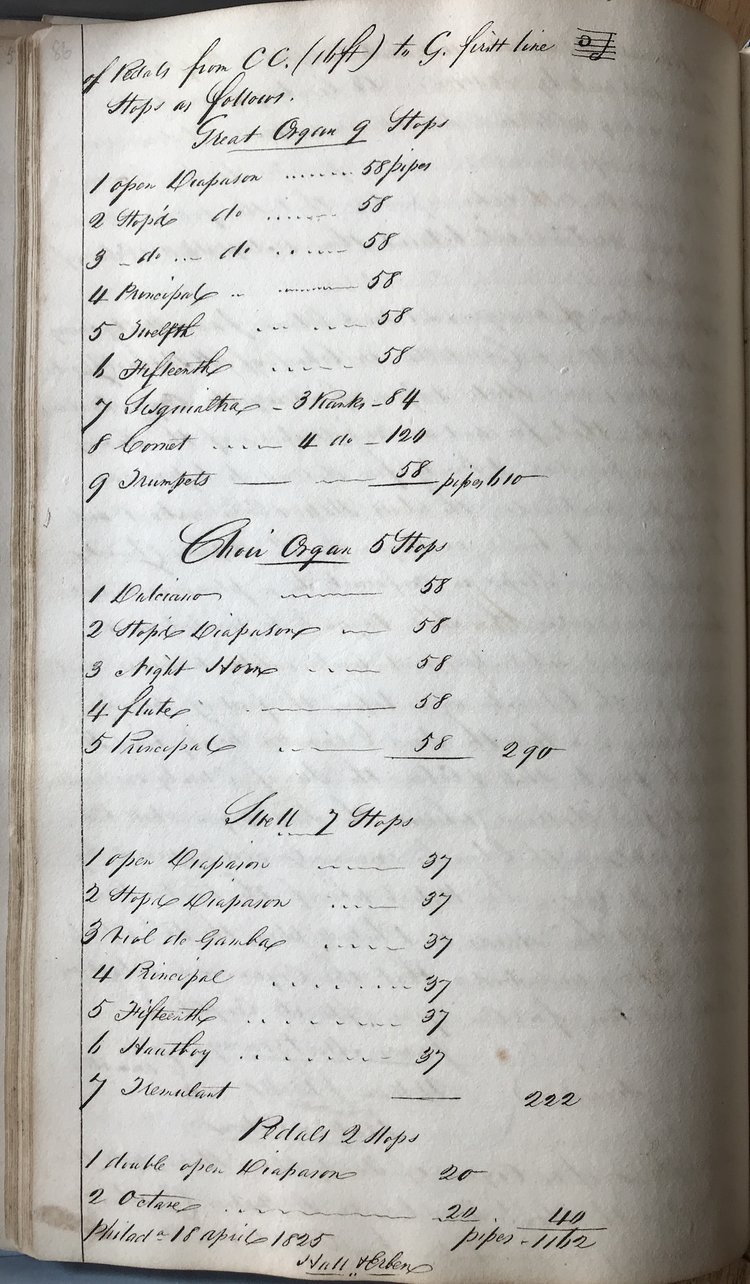 86
of Pedals from CC. (16ft) to G. first line
Stops as follows.
Great Organ 9 Stops
1 open Diapason ........ 58 pipes
2 Stopd do ........ 58
3 - do ... do ........ 58
4 Principal .. ........ 58
5 Twelfth ........ 58
6 Fifteenth ........ 58
7 Sesquialtra - 3 Ranks - 84
8 Cornet ..... 4 do - 120
9 Trumpets 58 pipes 610
Choir Organ 5 Stops
1 Dulciano 58
2 Stopd Diapason 58
3 Night Horn 58
4 flute 58
5 Principal 58 290
Swell 7 Stops
1 open Diapason 37
2 Stopd Diapason 37
3 Viol de Gamba 37
4 Principal 37
5 Fifteenth 37
6 Hautboy 37
7 Tremulant 222
Pedals 2 Stops
1 double open Diapason 20
2 Octave 20 40
Philada 18 April 1825 pipes - 1162
Hall & Erben